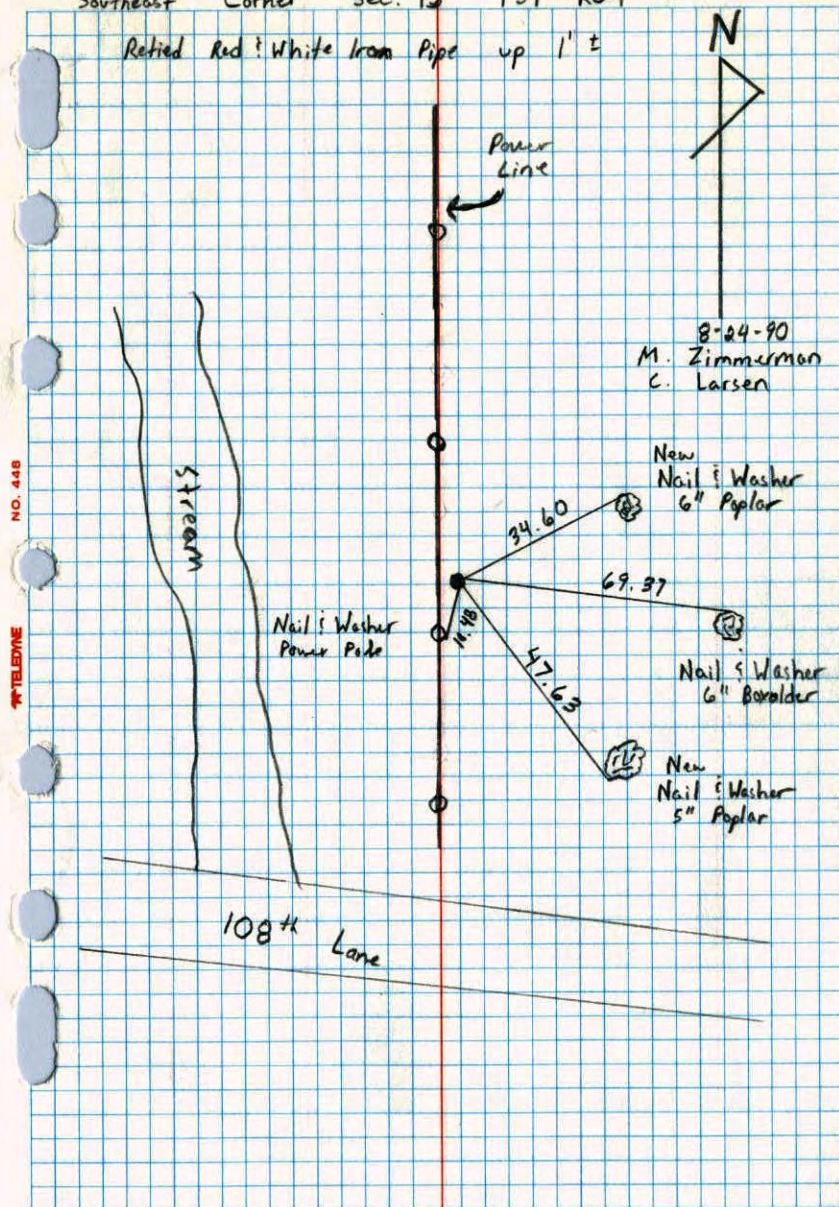 Southeast Corner Sec. 13 T31 R24
Retied Red & White Iron Pipe up 1' ±
N
Power
Line
8-24-90
M. Zimmerman
C. Larsen
New
Nail & Washer
6" Poplar
34.60
69.37
Stream
Nail & Washer
Power Pole
11.48
47.63
Nail & Washer
6" Boxolder
New
Nail & Washer
5" Poplar
108th Lane
NO. 448
TELEDYNE